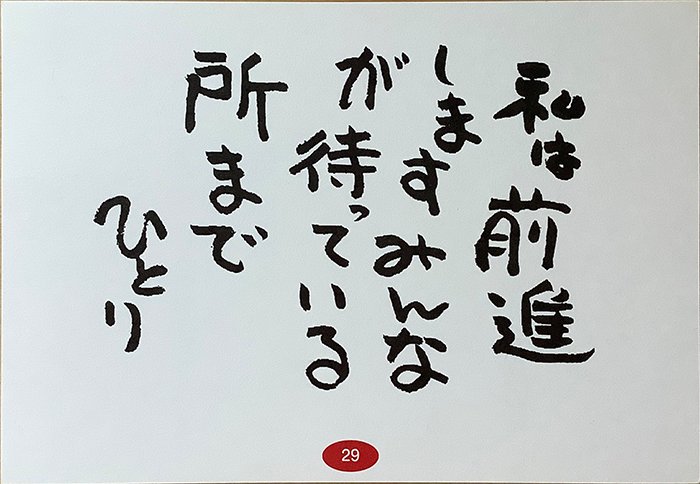 私は前進
しますみんな
が待っている
所まで
ひとり
29